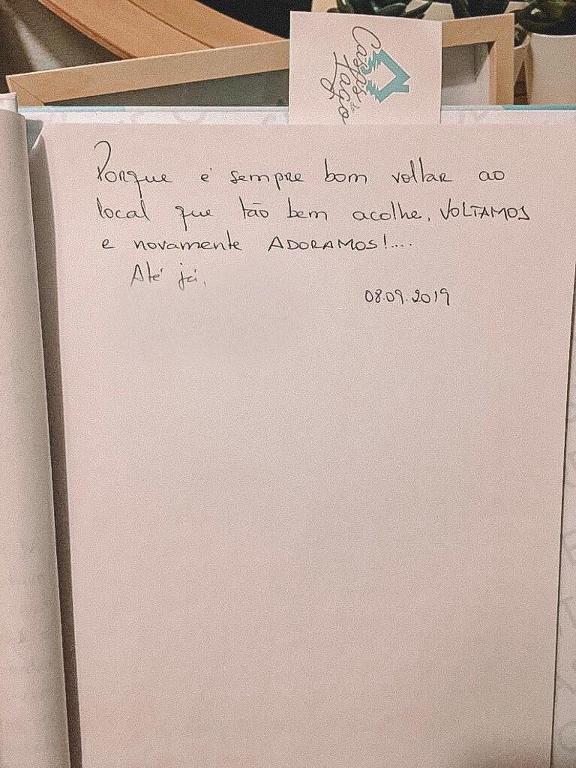 Casas
do
Lago
Porque é sempre bom voltar ao
local que tão bem acolhe, VOLTAMOS
e novamente ADORAMOS!....
Até já.
08.09.2019